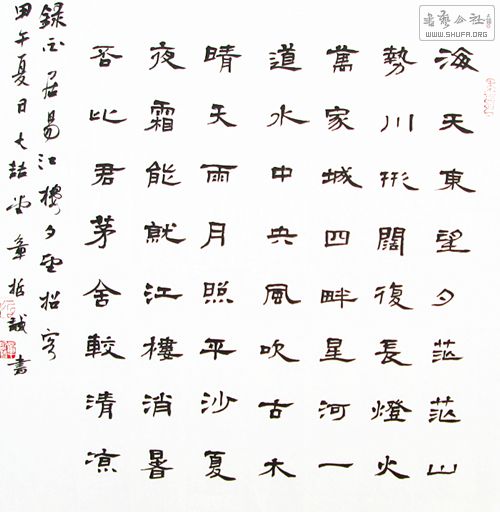 海天東望夕茫茫山
勢川形闊復長燈火
萬家城四畔星河一
道水中央風吹古木
晴天雨月照平沙夏
夜霜能就江樓消暑
否比君茅舍較清涼
錄白居易江樓夕望招客
甲午夏日喆堂章誠書
書藝公社
WWW.SHUFA.ORG